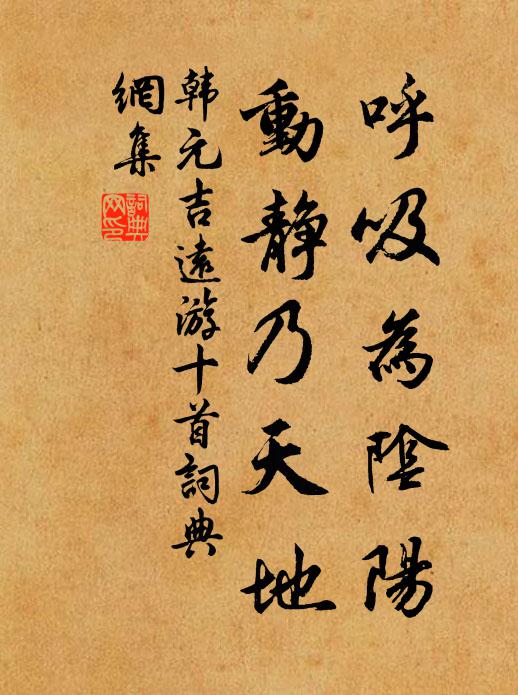 呼吸為陰陽
動靜乃天地
韩元吉遠游十首詞典
網集
詞典網印